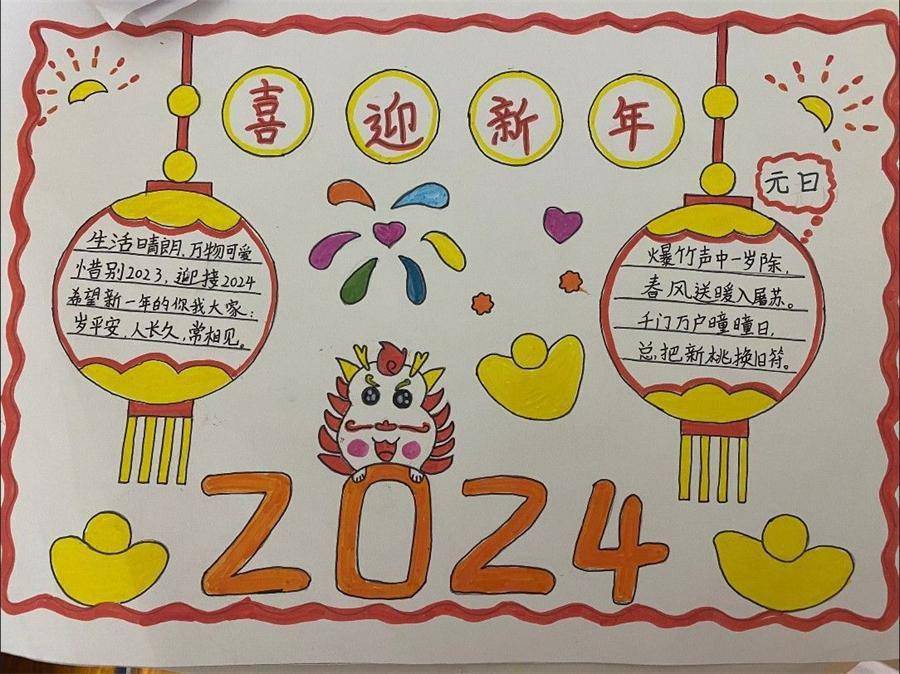 喜迎新年
生活晴朗,万物可爱
惜别2023,迎接2024
希望新一年的你我大家:
岁平安,人长久,常相见。
元日
爆竹声中一岁除,
春风送暖入屠苏。
千门万户曈曈日,
总把新桃换旧符。
2024